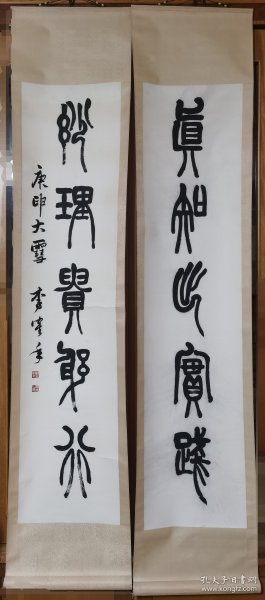 眞知出實踐
玅理貴躬行
庚申大雪 李
孔夫子旧书网
www.kongfz.com